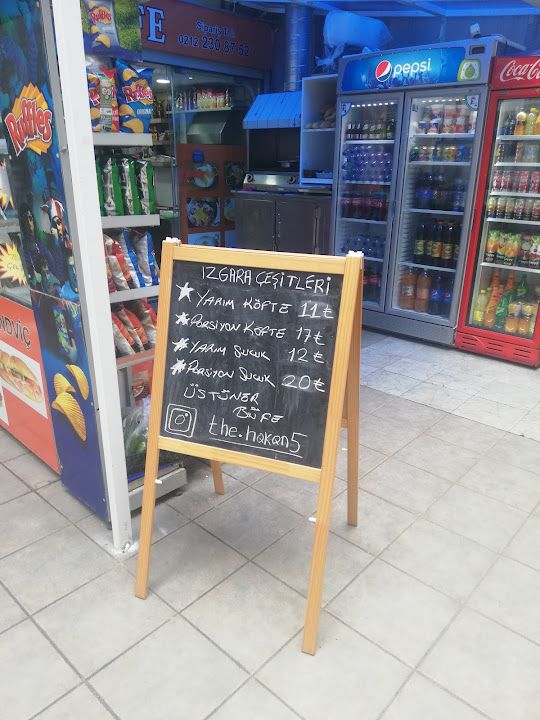 TE
Sipariş Tel.
0212 230 87 52
Ruffles
Ruffles
pepsi
Coca-Cola
NDVİÇ
IZGARA ÇEŞİTLERİ
YARIM KÖFTE 11₺
PORSİYON KÖFTE 17₺
YARIM SUCUK 12₺
PORSİYON SUCUK 20₺
ÜSTÜNER
BÜFE
the.hakan5